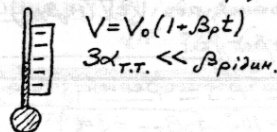 V = V₀(1+β_ρt)
3α_т.т. << β_рідин.